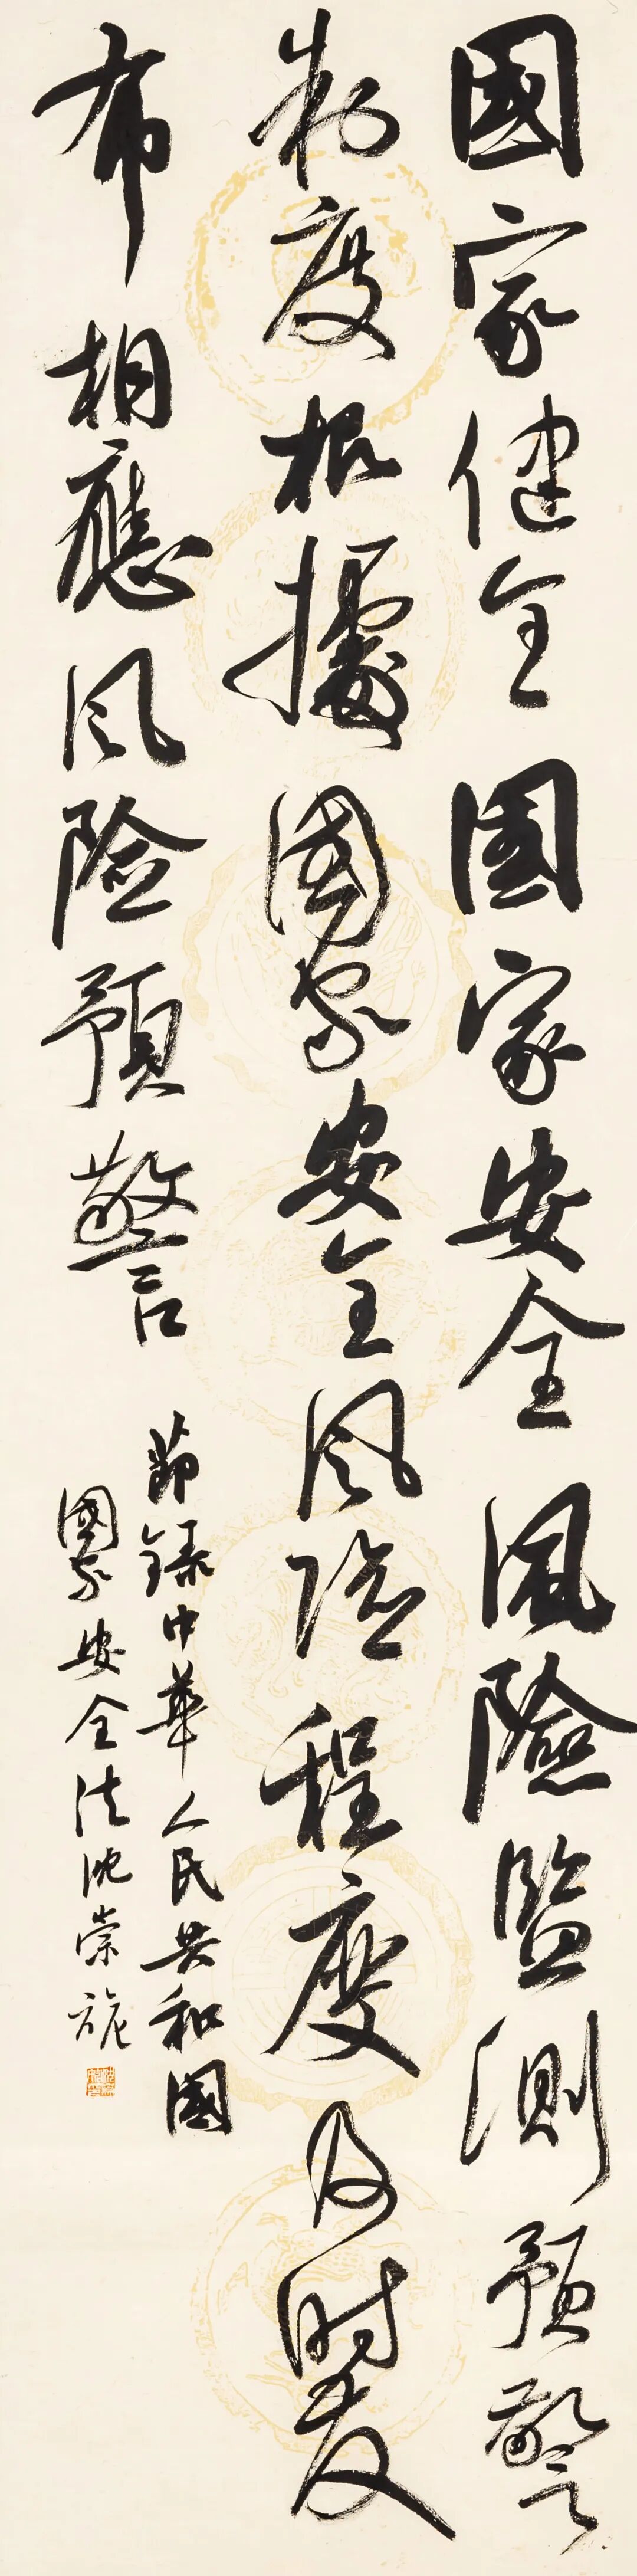 國家健全國家安全風險監測預警
制度根據國家安全風险程度及時发
布相應风險預警
節錄中華人民共和國
國家安全法沈崇旎